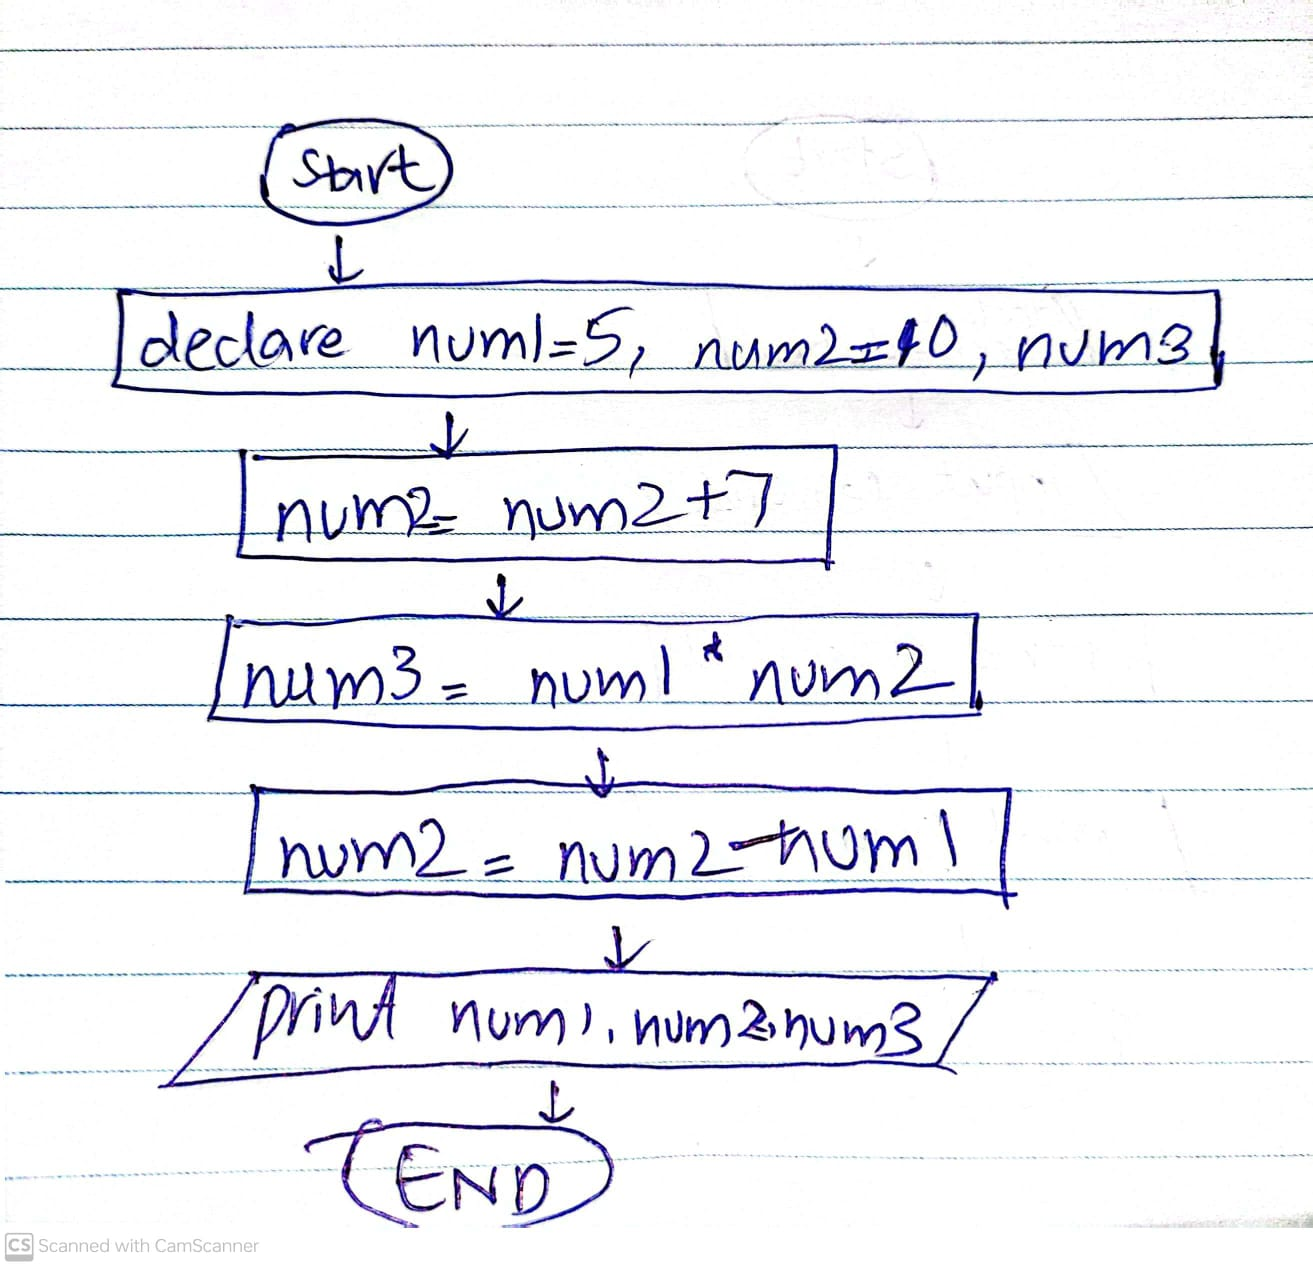 Start
declare num1=5, num2=10, num3
num2= num2+7
num3 = num1 * num2
num2 = num2-num1
print num1, num2, num3
END
CS Scanned with CamScanner